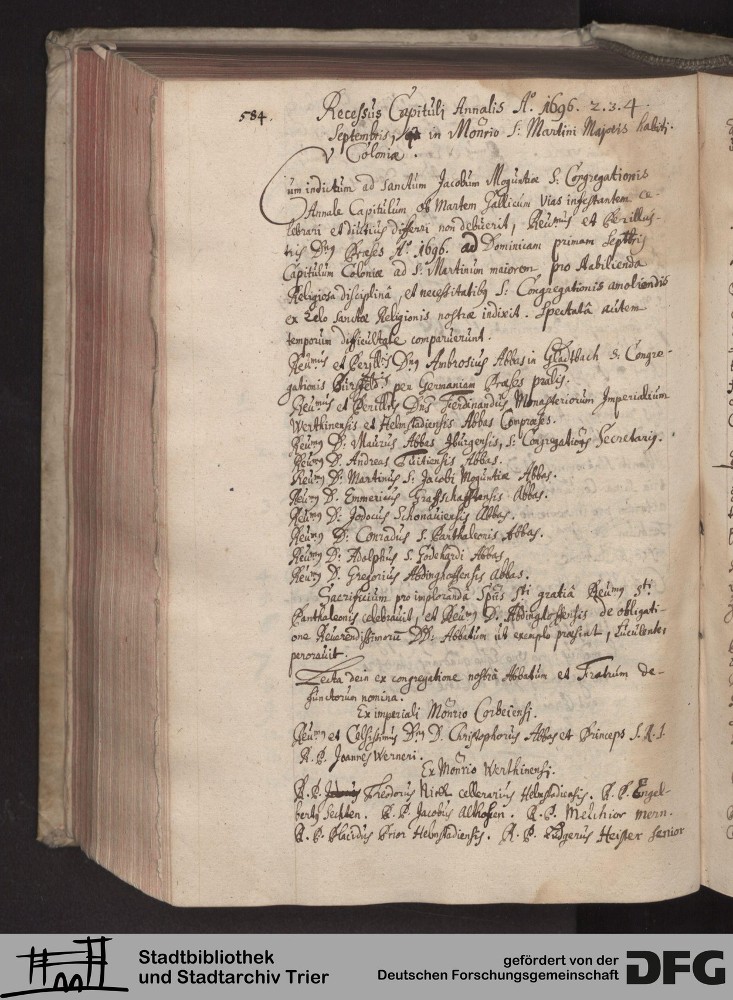 584.
Recessus Capituli Annalis Aº. 1696. 2. 3. 4
Septembris, in Monrio S: Martini Majoris habiti.
Coloniæ.
Cum indictum ad Sanctum Jacobum Moguntiæ S: Congregationis
Annale Capitulum ob Martem Gallicum vias infestantem ce-
lebrari et diutius differri non debuerit, Reūmus et Perillus-
tris Dny Præses Aº. 1696. ad Dominicam primam Septbris
Capitulum Coloniæ ad S: Martinum maiorem pro stabilienda
Religiosa disciplinâ, et necessitatibq S: Congregationis amoliendis
ex Zelo Sanctæ Religionis nostræ indixit. Spectatâ autem
temporum difficultate comparuerunt.
Reūmus et Perillris Dny Ambrosius Abbas in Gladtbach S: Congre-
gationis Bursfeldis per Germaniam Præses prælis.
Reūmus et Perillris Dnus Ferdinandus Monasteriorum Imperialium
Werthinensis et Helmstadiensis Abbas Compræses.
Reūmq D: Maurus Abbas Iburgensis, S: Congregationis Secretariq.
Reūmq D. Andreas Tuitiensis Abbas.
Reūmq D: Martinus S: Jacobi Moguntiæ Abbas.
Reūmq D. Emmericus Graffschafftensis Abbas.
Reūmq D: Jodocus Schonauiensis Abbas.
Reūmq D: Conradus S. Panthaleonis Abbas.
Reūmq D: Adolphus S. Godehardi Abbas
Reūmq D. Gregorius Abdinghoffensis Abbas.
Sacrificium pro imploranda Spūs Sti gratiâ Reūmq Sti.
Panthaleonis celebrauit, et Reūmq D. Abdinghoffensis de obligati-
one Reuerendissimorū DD: Abbatum ut exemplo præsint, luculenter
perorauit.
Lecta dein ex congregatione nostrâ Abbatum et Fratrum de-
functorum nomina.
Ex imperiali Monrio Corbeiensi.
Reūmq et Celsissimus Dny D. Christophorus Abbas et Princeps S. R. I.
R. P. Joannes Werneri.
Ex Monrio Werthinensi.
R. P. Theodorus cellerarius Helmstadiensis. R. P. Engel-
bertq Sechten. R. P. Jacobus Althofen. R. P. Melchior Mern.
R. P. Placidus Prior Helmstadiensis. R. P. Ludgerus Heister Senior
Stadtbibliothek
und Stadtarchiv Trier
gefördert von der
Deutschen Forschungsgemeinschaft
DFG